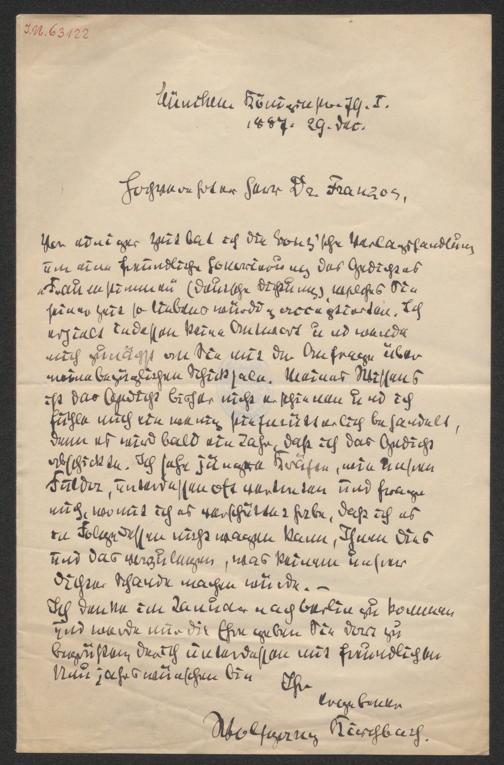 J.N. 63122
München Königinstr. 79. I.
1887. 29. Dec.
Hochverehrter Herr Dr. Franzos,
Vor einiger Zeit bat ich die Bonz'sche Verlagshandlung
um eine freundliche Honorirung des Gedichtes
"Frauenstimmen (Deutsche Dichtung) welches Sie
seiner Zeit so liebenswürdig acceptierten. Ich
erhielt indessen keine Antwort und wende
mich zunächst an Sie mit der Anfrage über
meine bezüglichen Schicksale. Meines Wissens
ist das Gedicht bisher nicht erschienen und ich
fühle mich ein wenig stiefmütterlich behandelt,
denn es wird bald ein Jahr, daß ich das Gedicht
abschickte. Ich sehe jüngere Kräfte, wie unsern
Fulda, unterdessen oft vertreten und frage
mich, womit ich es verschüttet habe, daß ich es
in Folge dessen nicht wagen kann, Ihnen dies
und das vorzulegen, was keinem unserer
Dichter Schande machen würde. –
Ich denke im Januar nach Berlin zu kommen
und werde mir die Ehre geben Sie dort zu
begrüßen der ich unterdessen mit freundlichen
Neujahrswünschen bin
Ihr
ergebener
Wolfgang Kirchbach.